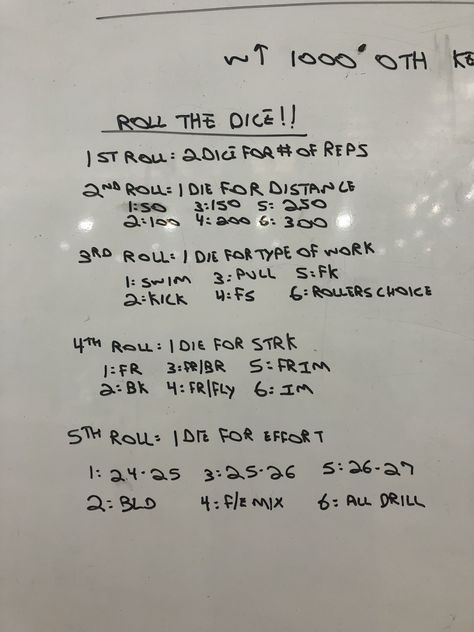 W↑ 1000' OTH
ROLL THE DICE!!
1ST ROLL: 2 DICE FOR # OF REPS
2ND ROLL: 1 DIE FOR DISTANCE
1:50 3:150 5: 250
2:100 4: 200 6: 300
3RD ROLL: 1 DIE FOR TYPE OF WORK
1: SWIM 3: PULL 5: FK
2: KICK 4: FS 6: ROLLERS CHOICE
4TH ROLL: 1 DIE FOR STRK
1: FR 3: FR/BR 5: FRIM
2: BK 4: FR/FLY 6: IM
5TH ROLL: 1 DIE FOR EFFORT
1: 24-25 3: 25-26 5: 26-27
2: BLD 4: F/E MIX 6: ALL DRILL